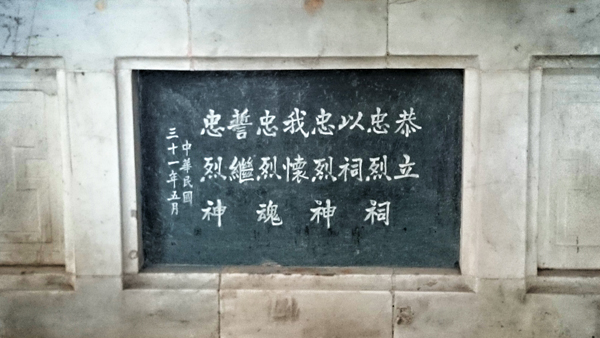 恭立
忠烈祠
以祠
忠烈神
我懷
忠烈魂
誓繼
忠烈神
中華民國
三十一年五月